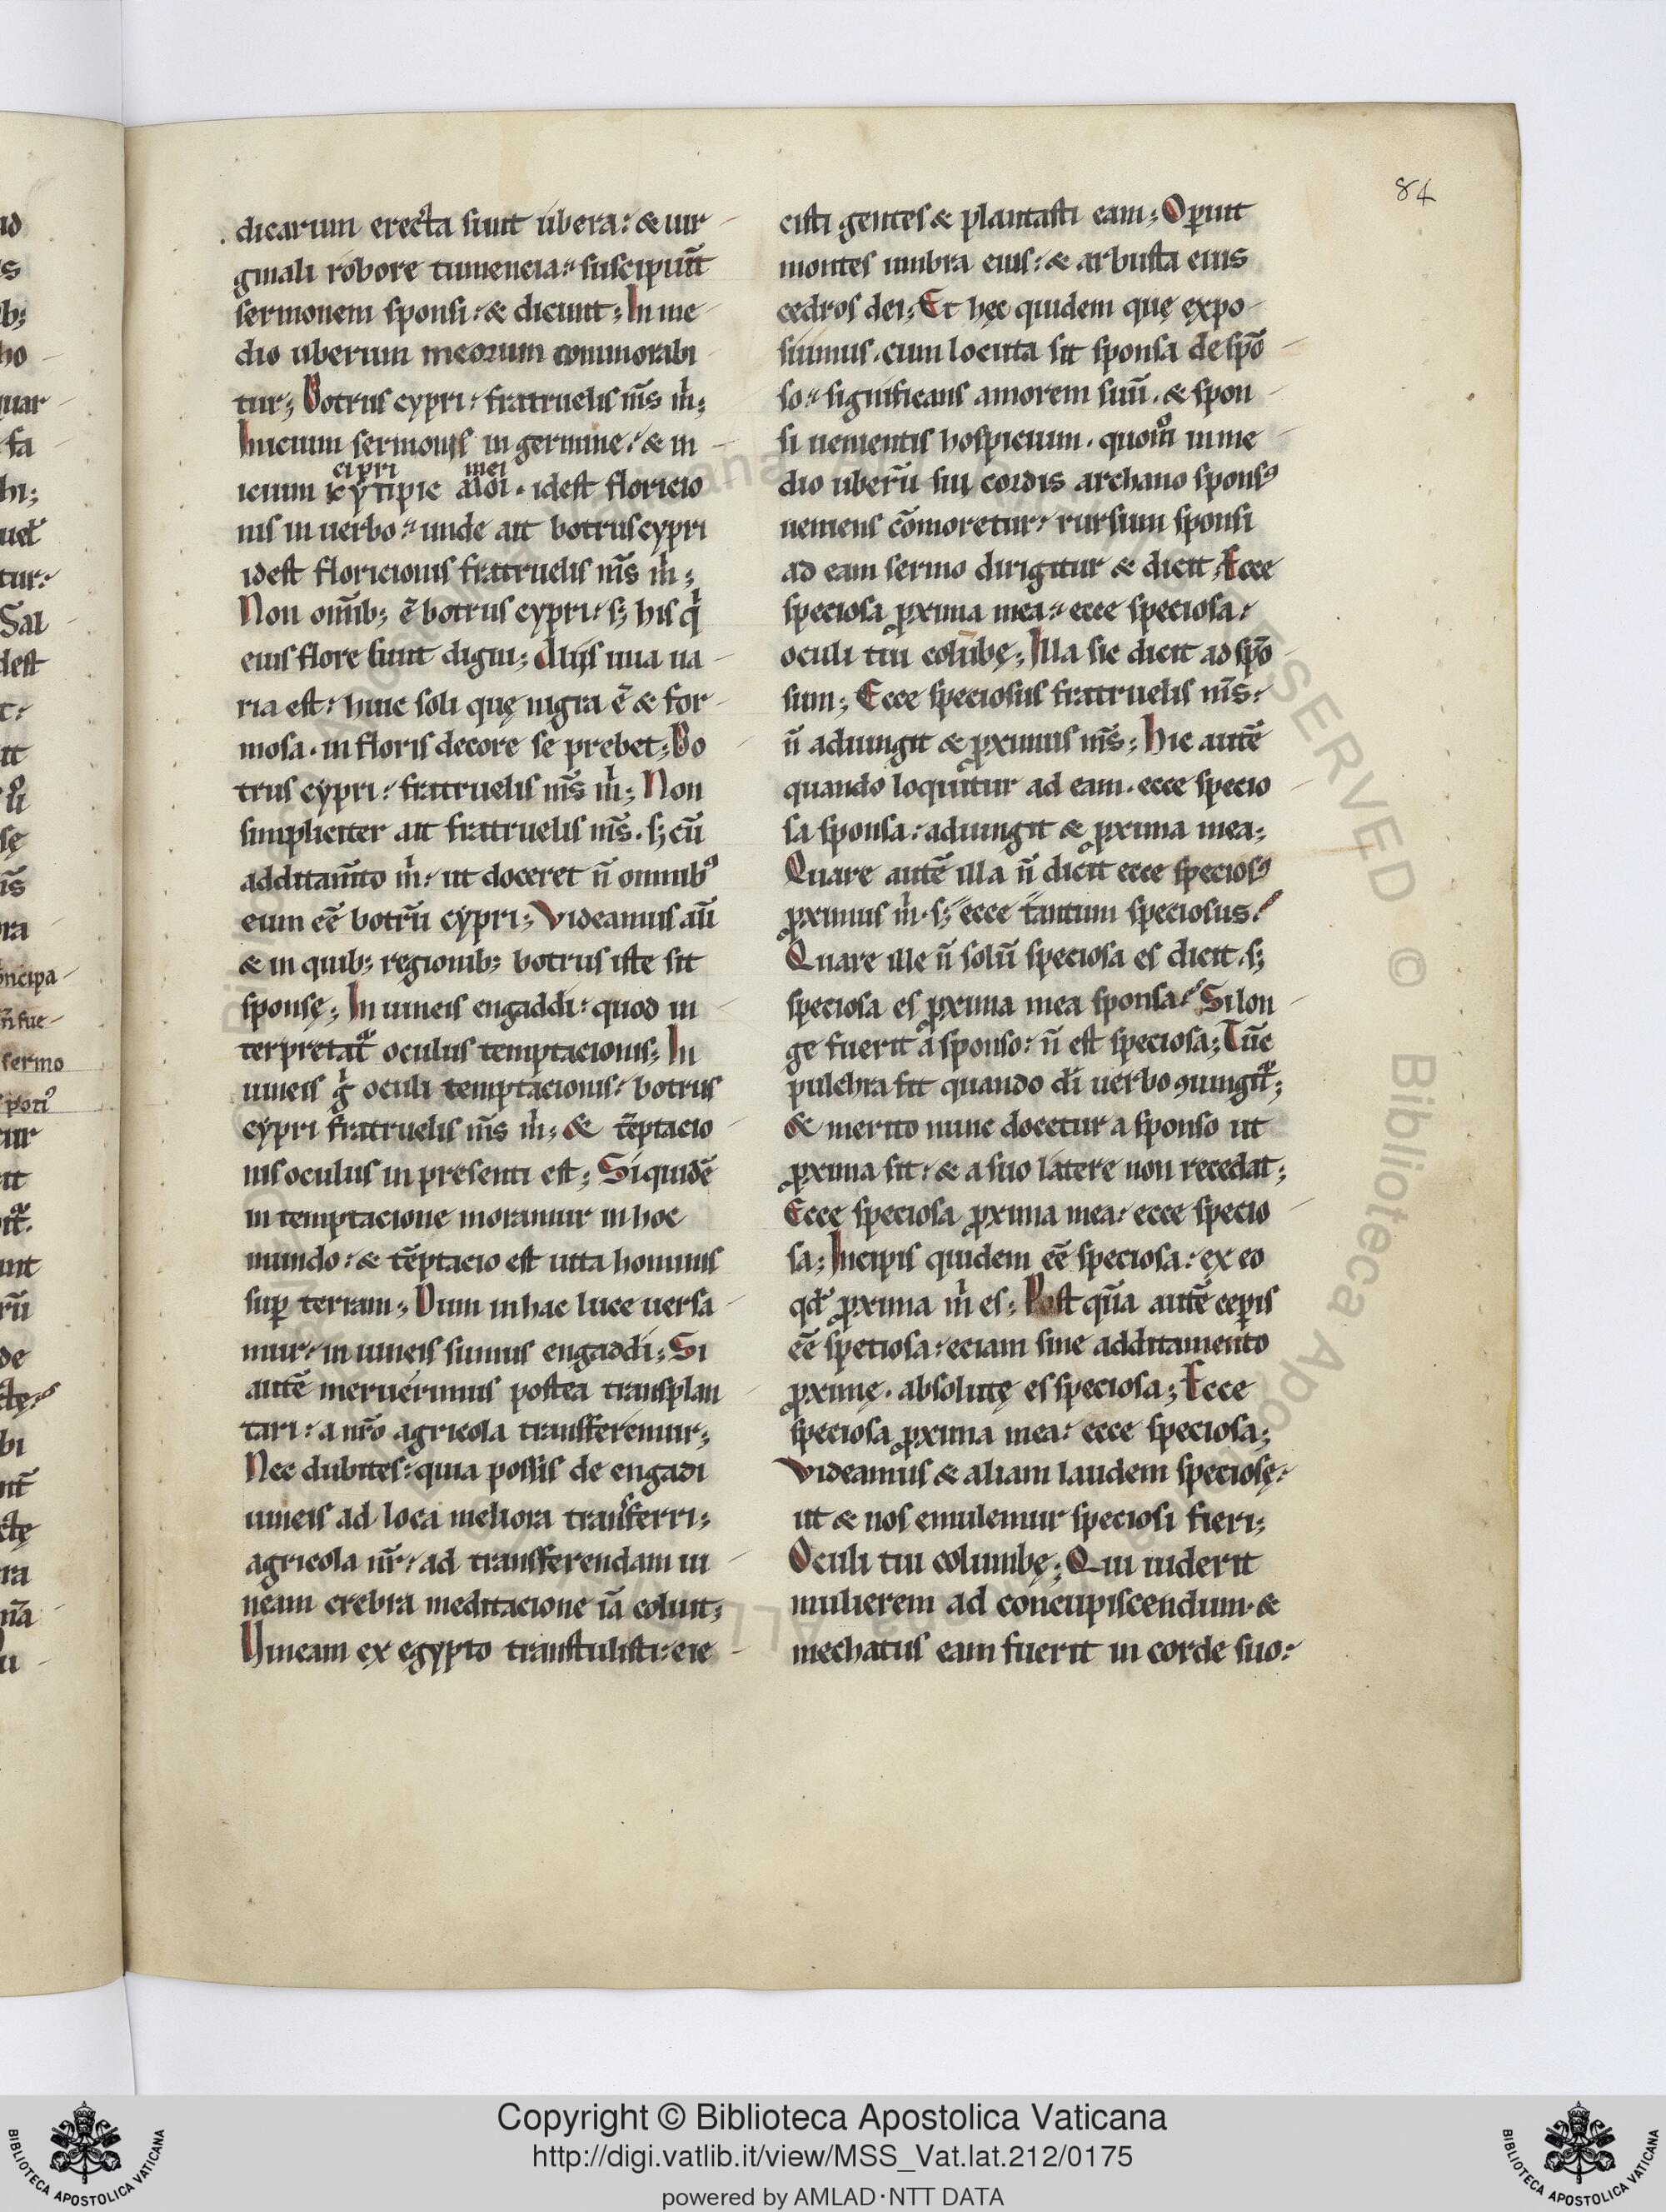 84
dicarum erecta sunt ubera: & uir
ginali robore tumencia: suscipiūt
sermonem sponsi: & dicunt; In me
dio uberum meorum commorabi
tur; Botrus cypri: fratruelis m̄s m̊;
Inicium sermonis in germine: & in
cipri mei
icium idest floricio
nis in uerbo: unde ait botrus cypri
idest floricionis fratruelis m̄s m̊;
Non om̄ib; ē botrus cypri: s; his q̊
eius flore sunt digni; Alijs uua ua
ria est: huic soli quę nigra ē & for
mosa. in floris decore se prebet; Bo
trus cypri: fratruelis m̄s m̊; Non
simpliciter ait fratruelis m̄s. s; cū
additam̄to m̊: ut doceret n̄ omnibꝰ
eum eē botrū cypri; Videamus aū
& in quib; regionib; botrus iste sit
sponsę; In uineis engaddi: quod in
terpretat̃ oculus temptacionis; In
uineis g̊ oculi temptacionis: botrus
cypri fratruelis m̄s m̊; & tēptacio
nis oculus in presenti est; Si quidē
in temptacione moramur in hoc
mundo: & tēptacio est uita hominis
suꝑ terram; Dum in hac luce uersa
mur: in uineis sumus engaddi; Si
autē meruerimus postea transplan
tari: a nr̄o agricola transferemur;
Nec dubites: quia possis de engadi
uineis ad loca meliora transferri;
agricola nr̄: ad transferendam ui
neam crebra meditacione iā coluit;
Vineam ex egypto transtulisti: eie
cisti gentes & plantasti eam; Oꝑuit
montes umbra eius: & arbusta eius
cedros dei; Et hęc quidem quę expo
suimus. cum locuta sit sponsa de spō
so: significans amorem suū. & spon
si uenientis hospicium. quom̊ in me
dio uberū sui cordis archano sponsꝰ
ueniens cōmoretur: rursum sponsi
ad eam sermo dirigitur & dicit; Ecce
speciosa ꝓxima mea: ecce speciosa:
oculi tui colūbę; Illa sic dicit ad spō
sum; Ecce speciosus fratruelis m̄s:
n̄ adiungit & ꝓximus m̄s; Hic autē
quando loquitur ad eam. ecce specio
sa sponsa: adiungit & ꝓxima mea;
Quare autē illa n̄ dicit ecce speciosꝰ
ꝓximus m̊. s; ecce tantum speciosus:
Quare ille n̄ solū speciosa es dicit. s;
speciosa es ꝓxima mea sponsa: Si lon
ge fuerit a sponso: n̄ est speciosa; Tūc
pulchra fit quando di uerbo ꝯiungit̃;
& merito nunc docetur a sponso ut
ꝓxima sit: & a suo latere non recedat;
Ecce speciosa ꝓxima mea: ecce specio
sa; Incipis quidem eē speciosa: ex eo
qd̄ ꝓxima m̊ es; Post quā autē ceꝑis
eē speciosa: eciam sine additamento
ꝓximę. absolutę es speciosa; Ecce
speciosa ꝓxima mea: ecce speciosa;
Videamus & aliam laudem speciosę:
ut & nos emulemur speciosi fieri;
Oculi tui columbę; Qui uiderit
mulierem ad concupiscendum. &
mechatus eam fuerit in corde suo:
Copyright © Biblioteca Apostolica Vaticana
http://digi.vatlib.it/view/MSS_Vat.lat.212/0175
powered by AMLAD·NTT DATA
BIBLIOTECA APOSTOLICA VATICANA
BIBLIOTECA APOSTOLICA VATICANA